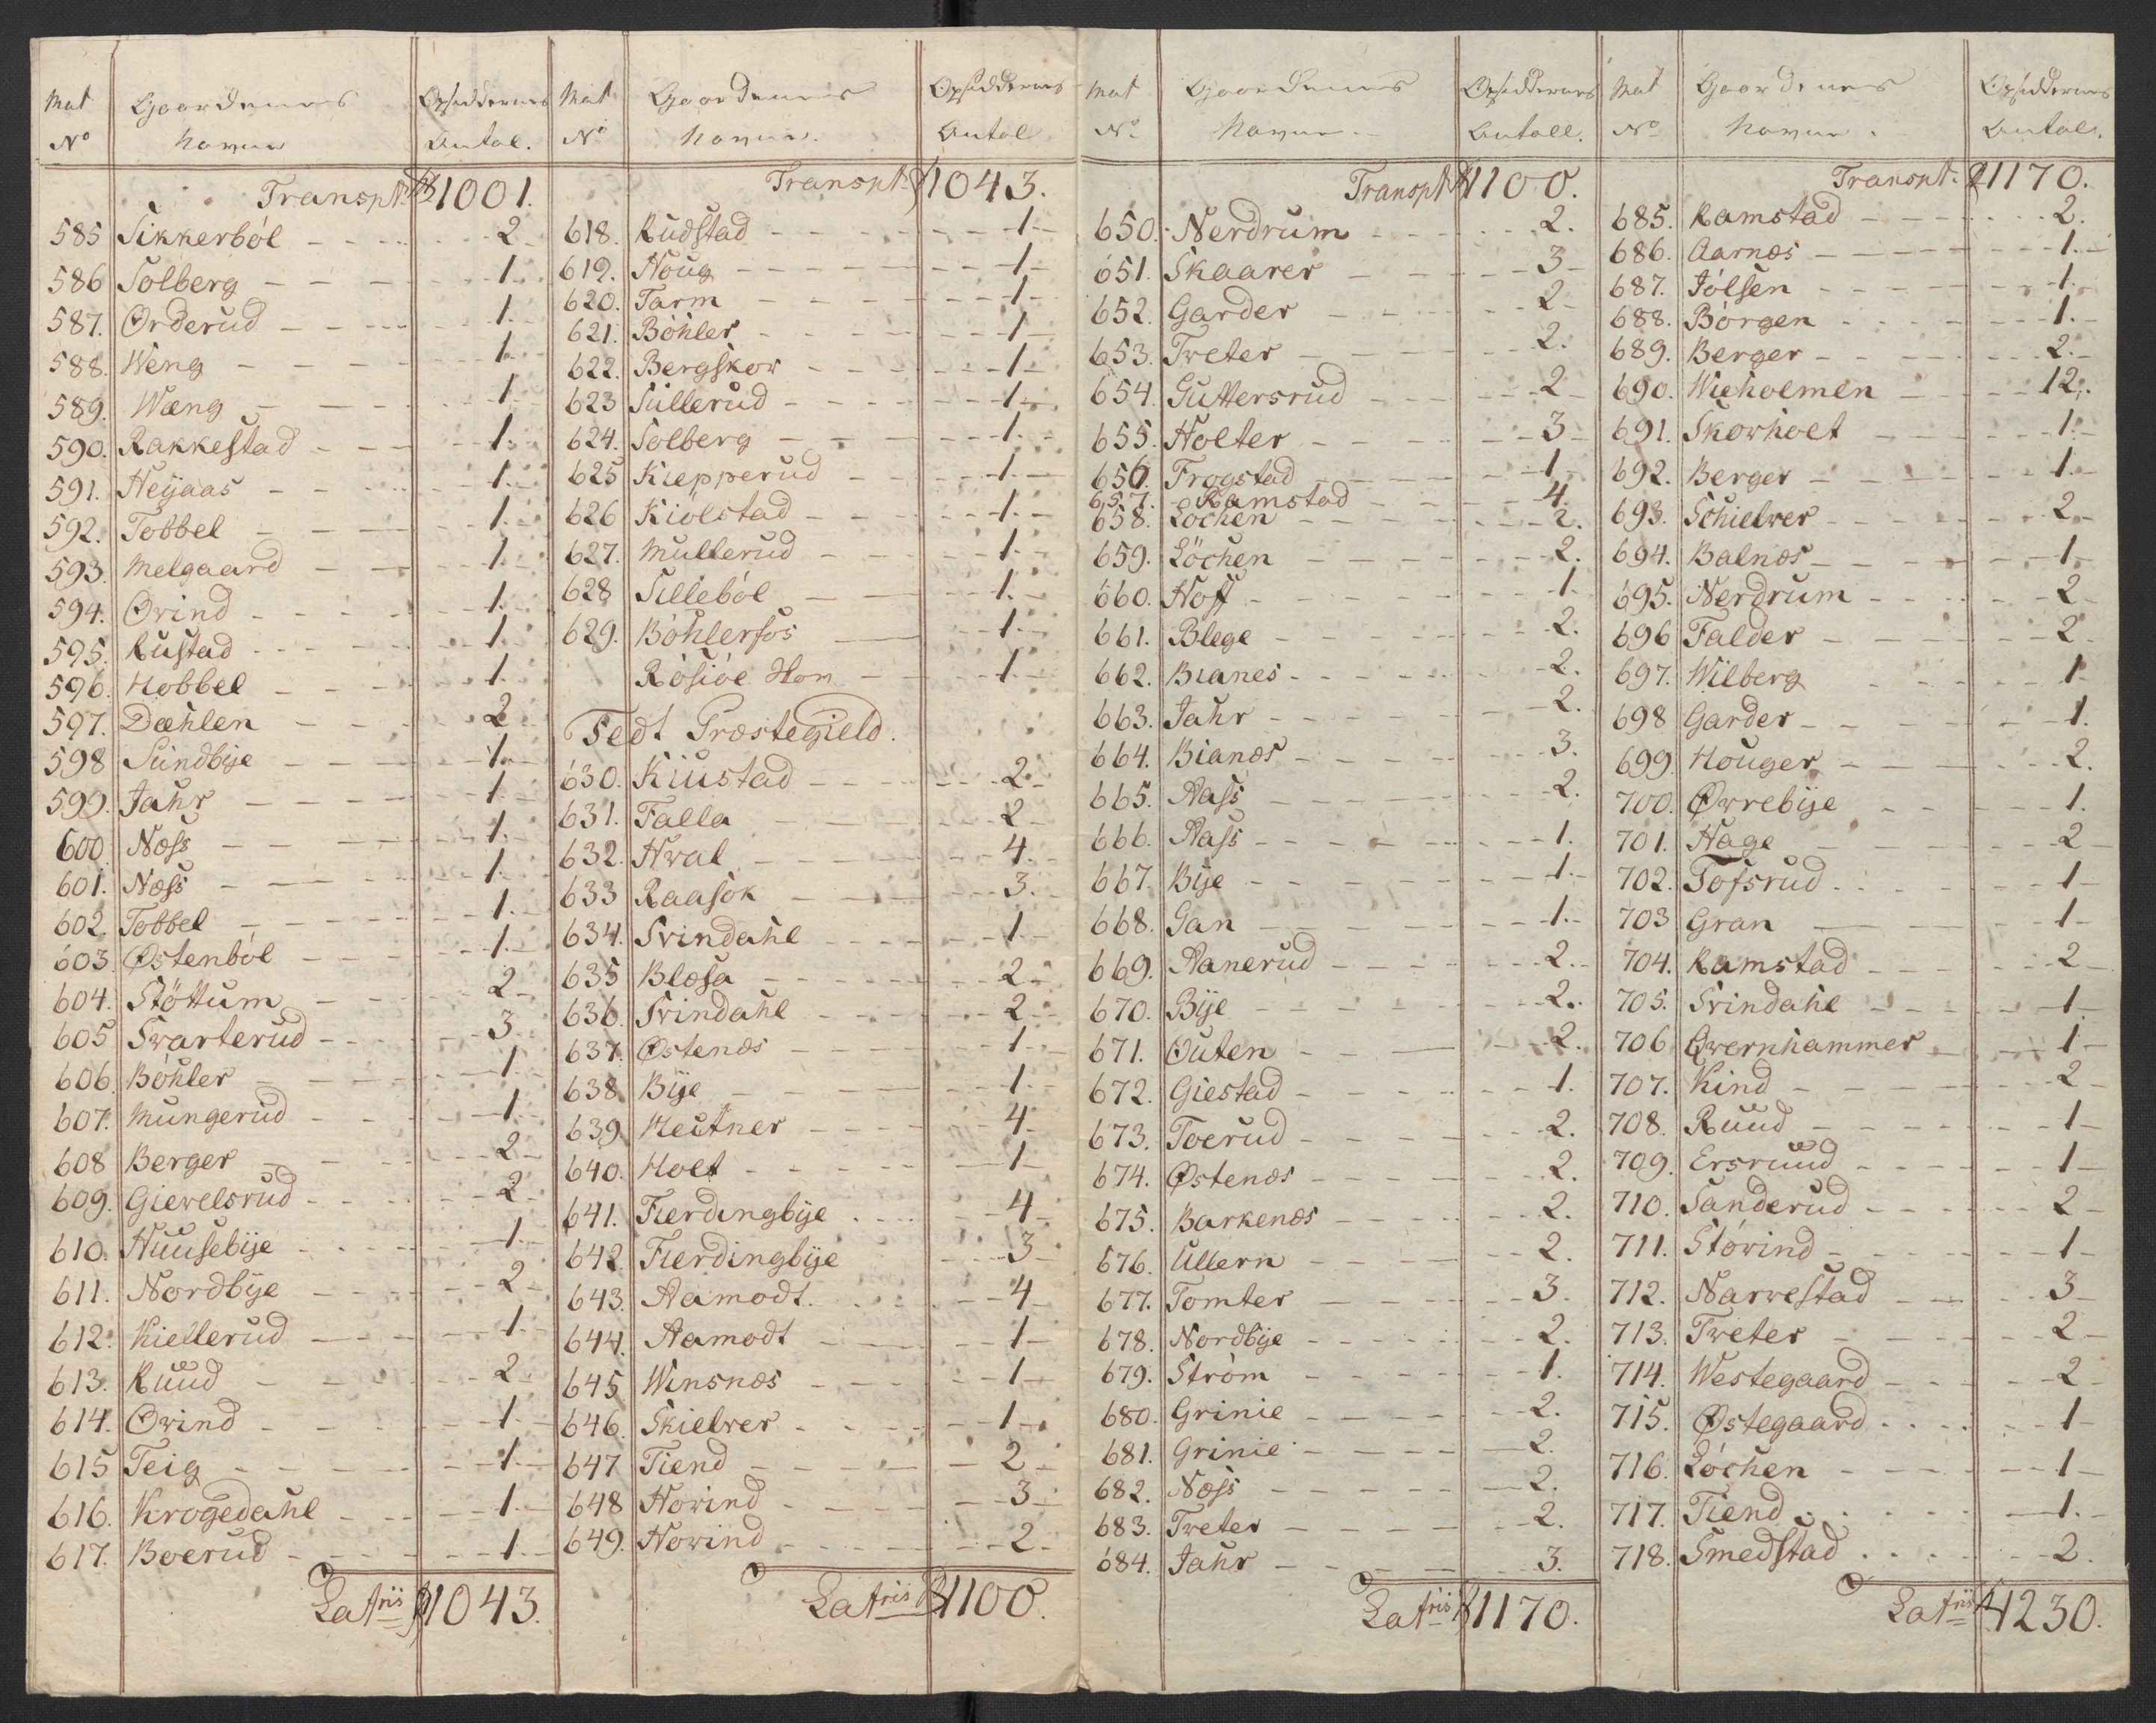 Mat No Gaardenes Navne Opsiddernes Antal.
Transpt. 1001.
585 Sikkerböl 2
586 Solberg 1.
587. Orderud 1.
588. Weng 1.
589. Wæng 1
590. Rakkestad 1.
591. Heyaas 1.
592. Tobbel 1.
593. Melgaard 1.
594. Ovind 1.
595. Rustad 1.
596. Hobbel 1.
597. Dæhlen 2
598 Sundbÿe 1.
599. Jahr 1.
600 Næss 1.
601. Næss 1.
602. Tobbel 1.
603. Østenböl 1.
604. Stöttum 2
605 Svarterud 3.
606. Böhler 1
607. Mungerud 1.
608 Berger 2
609. Gievelsrud 2
610. Huusebÿe 1.
611. Nordbÿe 2
612. Kiellerud 1.
613. Ruud 2
614. Ovind 1.
615 Teig 1.
616. Krogedahl 1.
617. Boerud 1.
Latriis 1043.
Mat No Gaardenes Navne. Opsiddernes Antal
Transpt. 1043.
618. Rudstad 1.
619. Houg 1
620. Tarm 1
621. Böhler 1
622. Bergskov 1.
623 Sullerud 1.
624. Solberg 1.
625 Kiepperud 1
626 Kiölstad 1.
627. Mullerud 1.
628 Silleböl 1.
629. Böhlerfos 1.
Rösiöe Hom 1.
Fedt Præstegield.
630. Kiustad 2.
631. Falla 2
632. Hval 4.
633 Raasok 3.
634. Svindahl 1.
635 Blæsa 2
636. Svindahl 2
637. Østenæs 1.
638. Bÿe 1.
639. Heutner 4.
640. Holt 1
641. Fierdingbÿe 4
642. Fierdingbÿe 3
643. Aamodt. 4
644. Aamodt 1
645 Winsnæs 1
646. Skielver 1.
647 Tiend 2
648 Hovind 3
649. Hovind 2
Latriis 1100.
Mat No. Gaardenes Navne. Opsiddernes Antall.
Transpt 1100.
650. Nerdrum 2.
651. Skaarer 3
652. Garder 2
653. Tveter 2.
654. Guttersrud 2
655. Holter 3
656. Frogstad 1
657. Ramstad 4.
658. Löchen 2.
659. Löchen 2.
660. Hoff 1.
661. Blege 2.
662. Bianes 2.
663. Jahr 2.
664. Bianæs 3.
665. Aass 2.
666. Aass 1.
667. Bÿe 1.
668. Gan 1.
669. Aanerud 2.
670. Bÿe 2.
671. Outen 2.
672. Giestad 1.
673. Toerud 2.
674. Østenæs 2.
675. Barkenæs 2.
676. Ullern 2.
677. Tomter 3.
678. Nordbÿe 2.
679. Ström 1.
680. Grinie 2.
681. Grinie 2.
682. Næss 2.
683. Tveter 2.
684. Jahr 3.
Latriis 1170.
Mat No Gaardenes Navne. Opsiddernes Antal.
Transpt. 1170.
685. Ramstad 2.
686. Aarnæs 1.
687. Jölsen 1.
688. Börgen 1.
689. Berger 2.
690. Wieholmen 12.
691. Skovholt 1.
692. Berger 1
693. Schielver 2
694. Balnæs 1
695. Nerdrum 2
696 Falder 2
697. Wilberg 1
698 Garder 1.
699 Houger 2.
700. Ovrebÿe 1.
701. Hage 2
702. Tofsrud 1
703 Gran 1
704. Ramstad 2
705. Svindahl 1
706 Qvernhammer 1
707. Kind 2
708. Ruud 1
709. Ersruud 1
710. Sanderud 2
711. Stövind 1
712. Narvestad 3
713. Tveter 2
714. Westegaard 2
715. Østegaard 1
716. Löchen 1
717. Tiend 1.
718. Smedstad 2.
Latriis 1230.